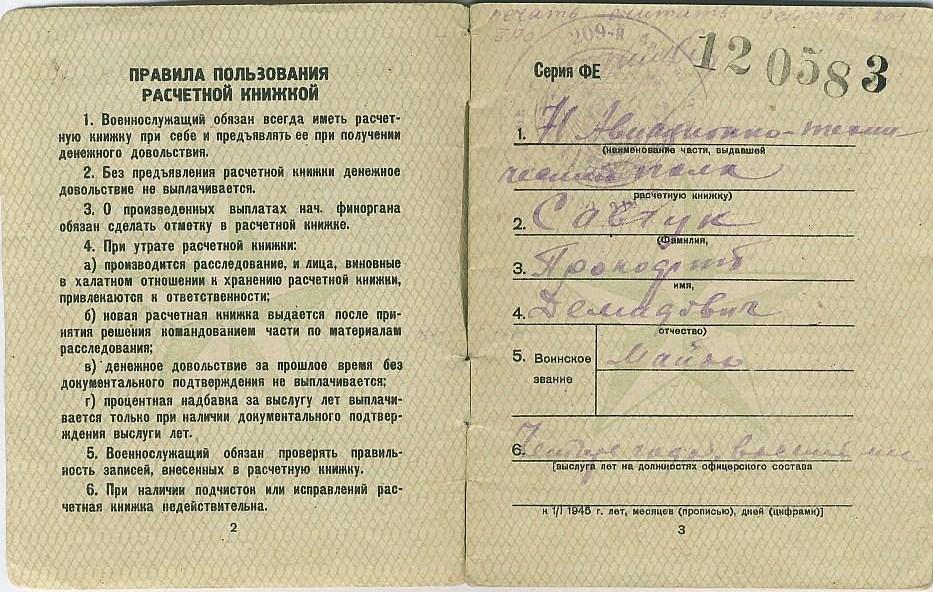 ПРАВИЛА ПОЛЬЗОВАНИЯ
РАСЧЕТНОЙ КНИЖКОЙ
1. Военнослужащий обязан всегда иметь расчет-
ную книжку при себе и предъявлять ее при получении
денежного довольствия.
2. Без предъявления расчетной книжки денежное
довольствие не выплачивается.
3. О произведенных выплатах нач. финоргана
обязан сделать отметку в расчетной книжке.
4. При утрате расчетной книжки:
а) производится расследование, и лица, виновные
в халатном отношении к хранению расчетной книжки,
привлекаются к ответственности;
б) новая расчетная книжка выдается после при-
нятия решения командованием части по материалам
расследования;
в) денежное довольствие за прошлое время без
документального подтверждения не выплачивается;
г) процентная надбавка за выслугу лет выплачи-
вается только при наличии документального подтвер-
ждения выслуги лет.
5. Военнослужащий обязан проверять правиль-
ность записей, внесенных в расчетную книжку.
6. При наличии подчисток или исправлений рас-
четная книжка недействительна.
2
печать считать
209-й
Серия ФЕ 120583
1. Авиационно-техни
(наименование части, выдавшей
полк
расчетную книжку)
2. Савчук
(Фамилия,
3. Прокофий
имя,
4. Демидович
отчество)
5. Воинское Майор
звание
6. Четыре года,
[выслуга лет на должностях офицерского состава
к 1/I 1945 г. лет, месяцев (прописью), дней (цифрами)]
3